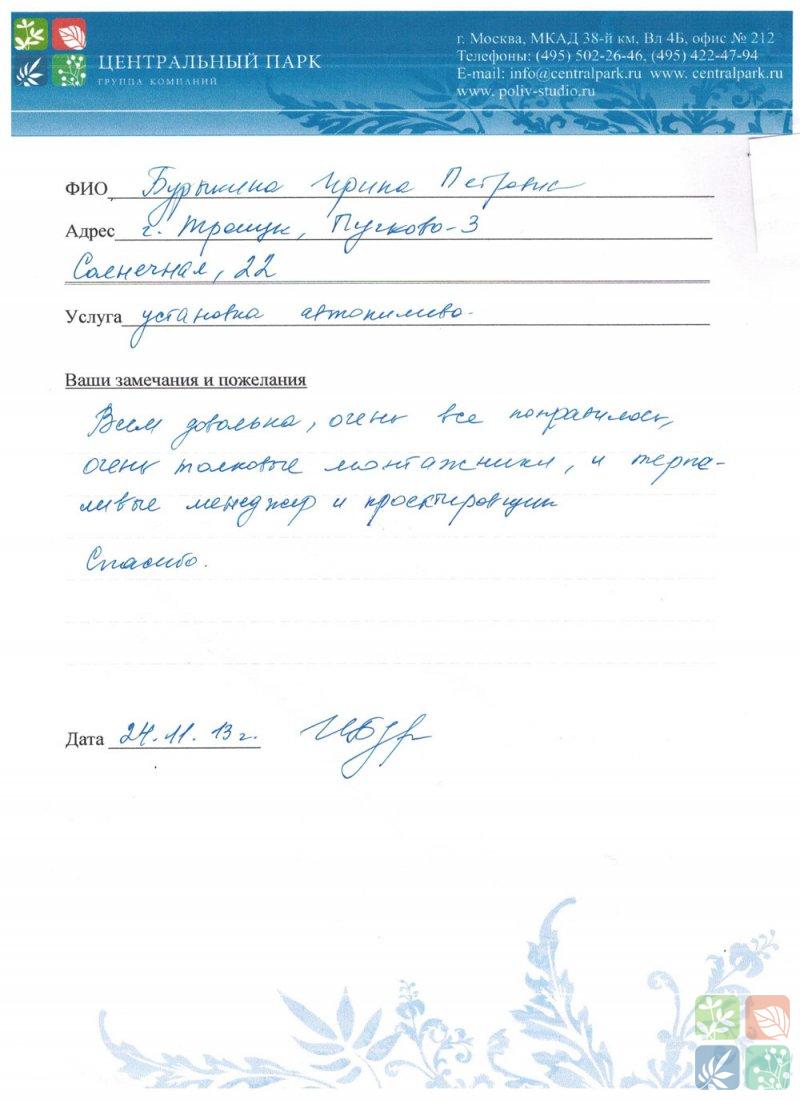 ЦЕНТРАЛЬНЫЙ ПАРК
ГРУППА КОМПАНИЙ
г. Москва, МКАД 38-й км, Вл 4Б, офис № 212
Телефоны: (495) 502-26-46, (495) 422-47-94
E-mail: info@centralpark.ru www. centralpark.ru
www. poliv-studio.ru
ФИО Бурыкина Ирина Петровна
Адрес г. Троицк, Пучково-3
Солнечная, 22
Услуга установка автополива.
Ваши замечания и пожелания
Всем довольна, очень все понравилось,
очень толковые монтажники, и терпе-
ливые менеджер и проектировщик
Спасибо.
Дата 24.11.13г.